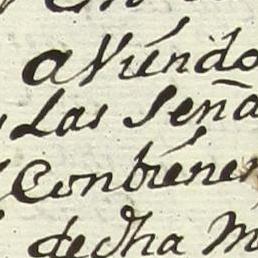 aViéndo
Las Seña
Contiéne
de dha M